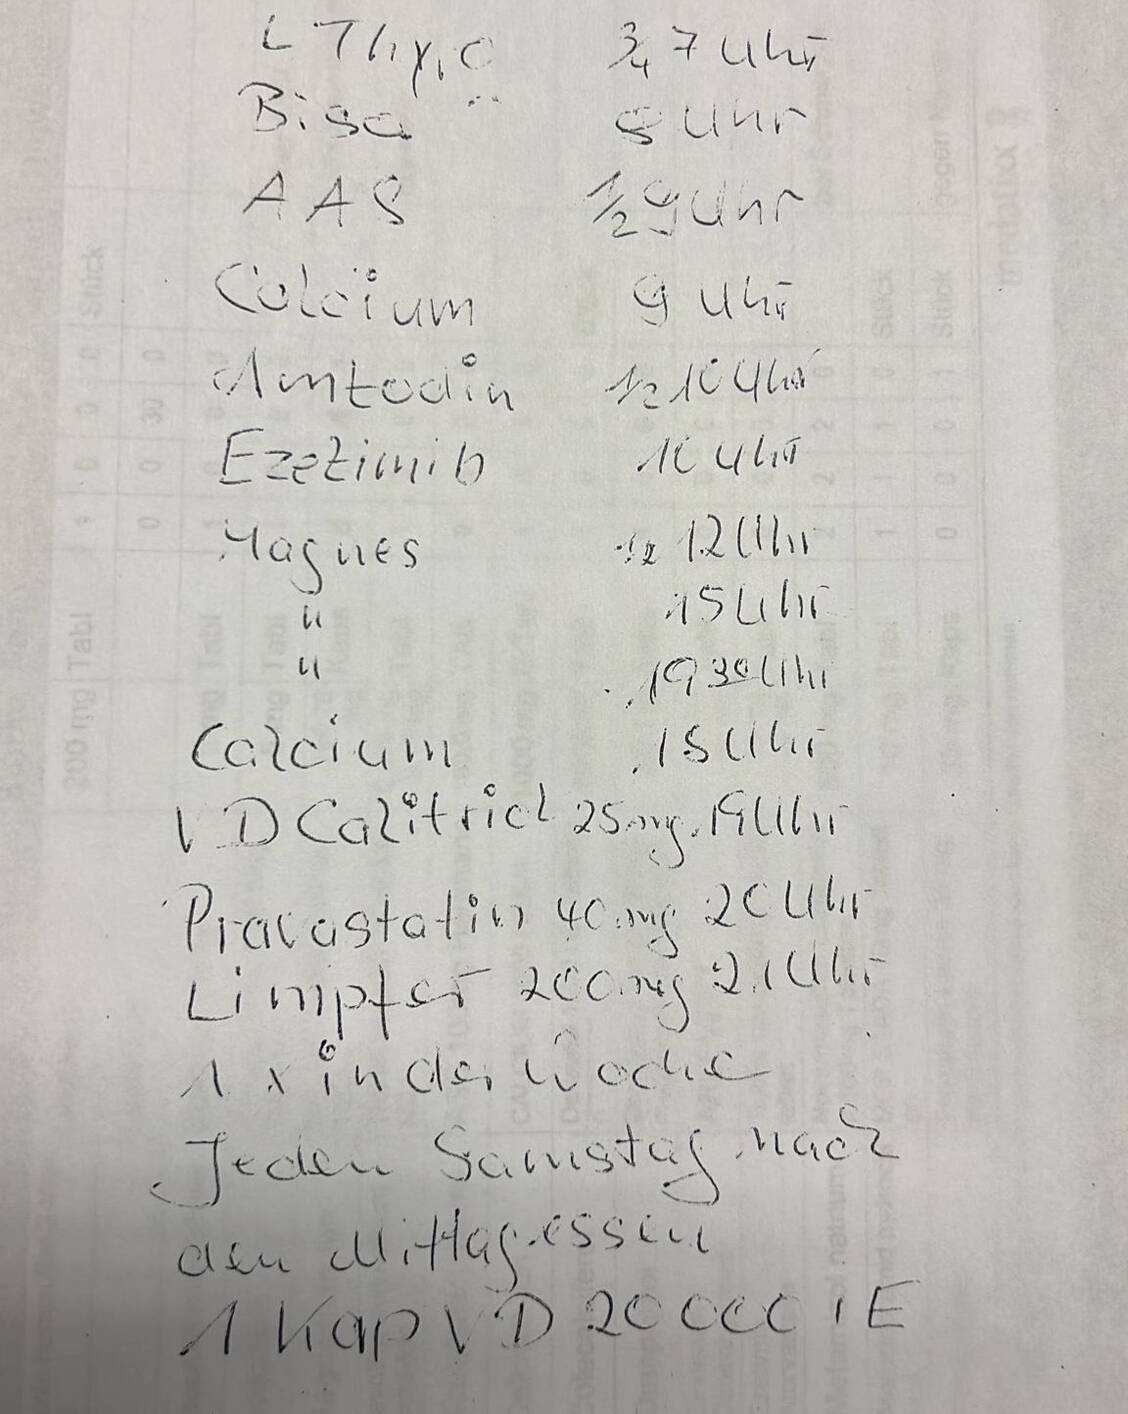 L Thyro 3/4 7 Uhr
Biso 8 Uhr
AAS 1/2 9 Uhr
Calcium 9 Uhr
Amlodin 1/2 10 Uhr
Ezetimib 10 Uhr
Magnes 1/2 12 Uhr
" 15 Uhr
" 19 30 Uhr
Calcium 15 Uhr
VD Calitriol 25 mg 19 Uhr
Pravastatin 40 mg 20 Uhr
Limpfer 200 mg 21 Uhr
1 x in der Woche
Jeden Samstag nach
den Mittagessen
1 Kap VD 20000 IE